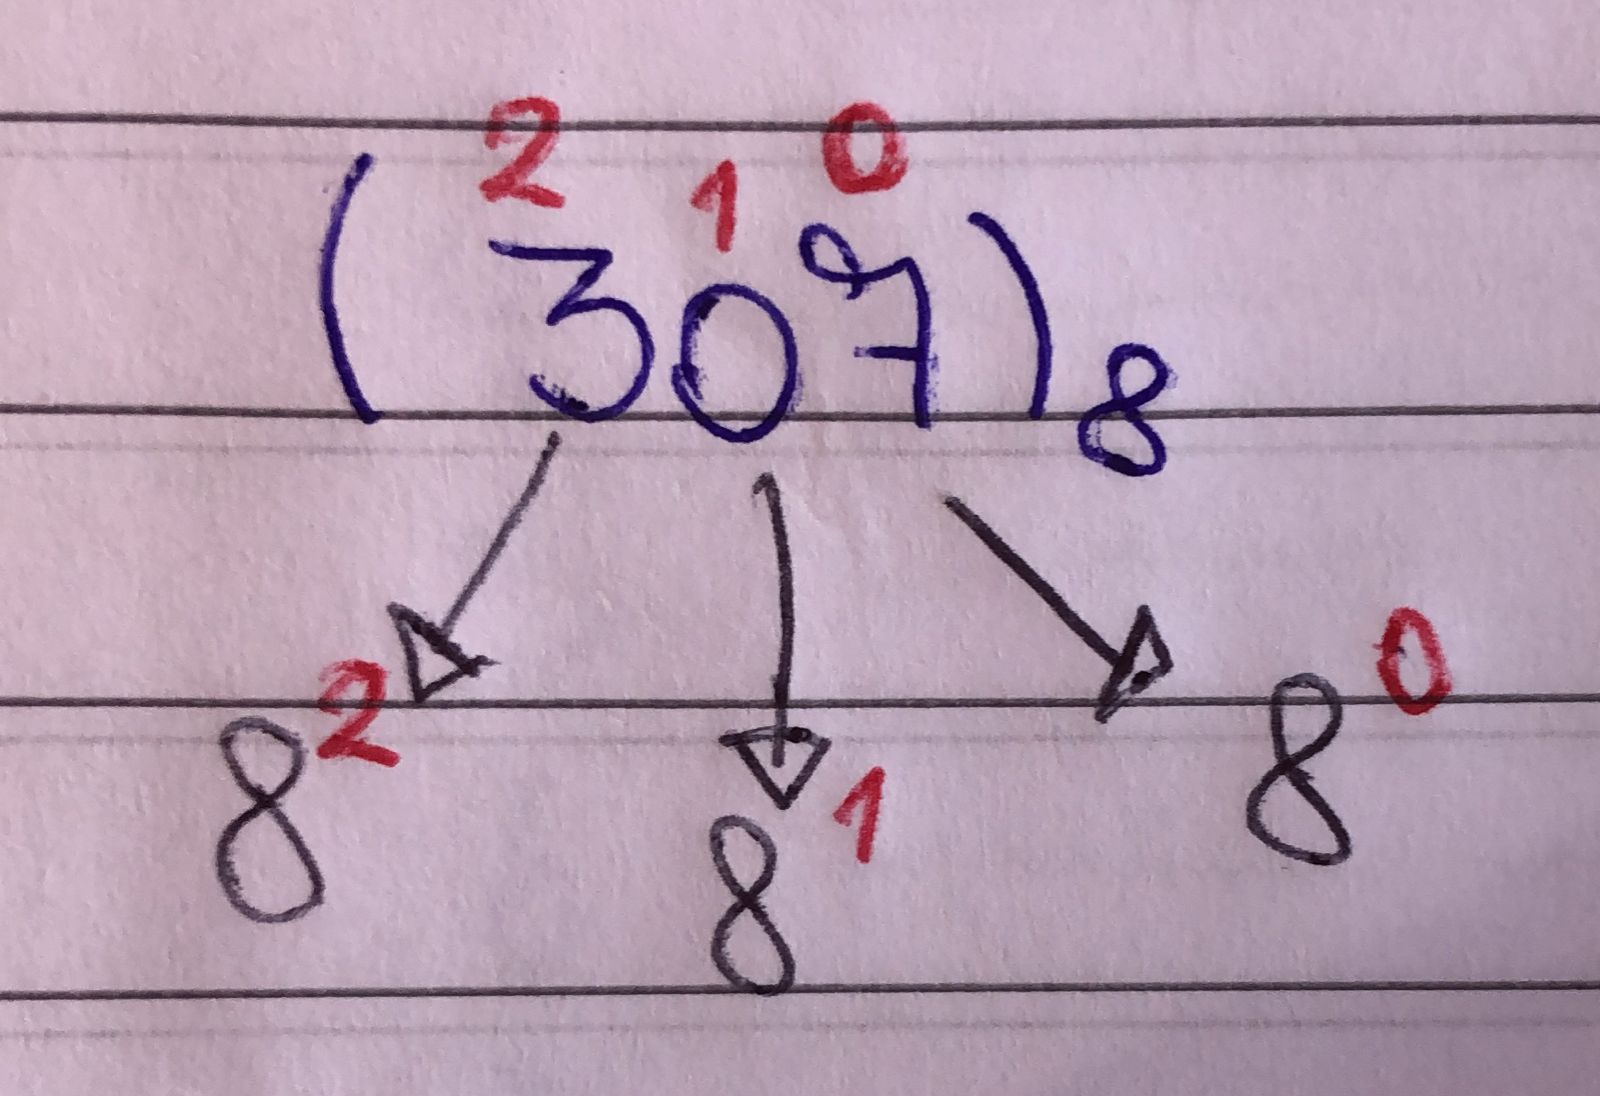 2 1 0
(307)₈
8² 8¹ 8⁰